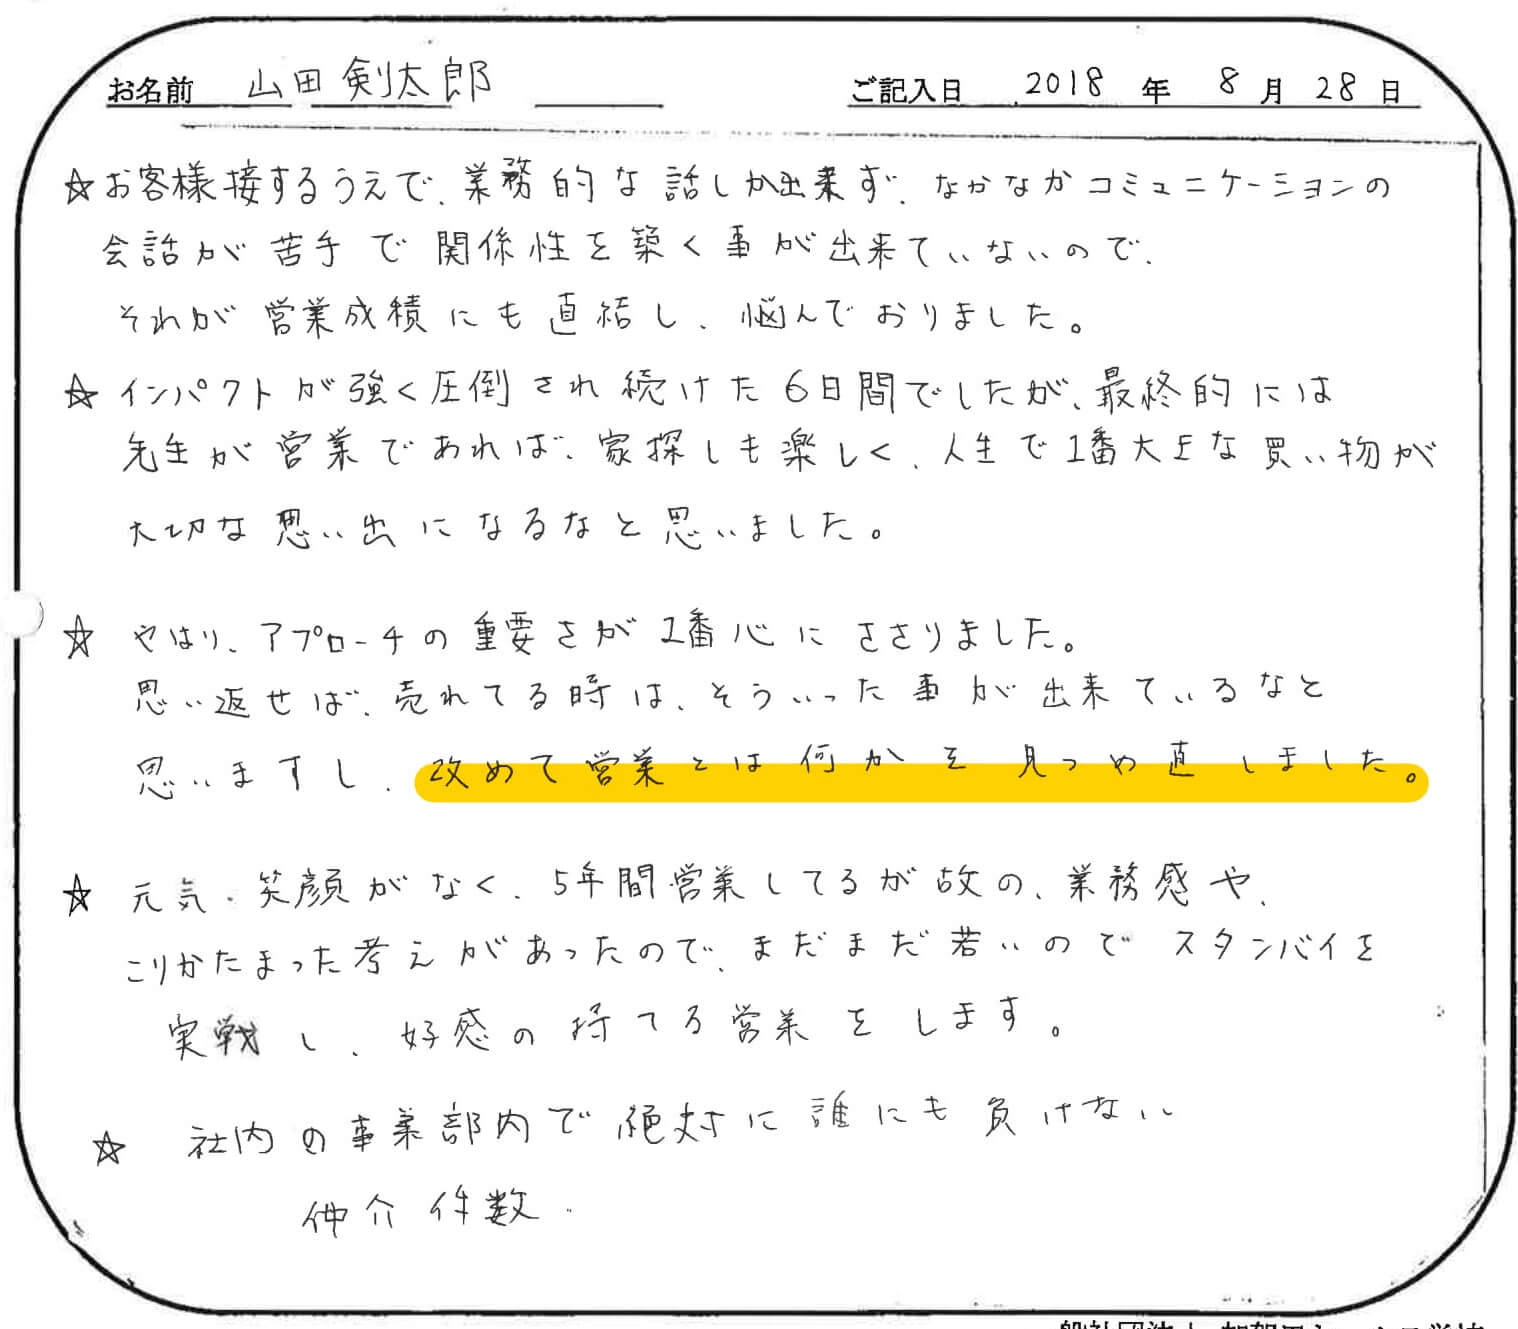 お名前 山田剣太郎 ご記入日 2018 年 8 月 28 日
☆お客様接するうえで、業務的な話しか出来ず、なかなかコミュニケーションの
会話が苦手で関係性を築く事が出来ていないので、
それが営業成績にも直結し、悩んでおりました。
☆インパクトが強く圧倒され続けた6日間でしたが、最終的には
先生が営業であれば、家探しも楽しく、人生で1番大きな買い物が
大切な思い出になるなと思いました。
☆やはり、アプローチの重要さが1番心にささりました。
思い返せば、売れてる時は、そういった事が出来ているなと
思いますし、改めて営業とは何かを見つめ直しました。
☆元気・笑顔がなく、5年間営業してるが故の、業務感や、
こりかたまった考えがあったので、まだまだ若いのでスタンバイを
実戦し、好感の持てる営業をします。
☆社内の事業部内で絶対に誰にも負けない
仲介件数.